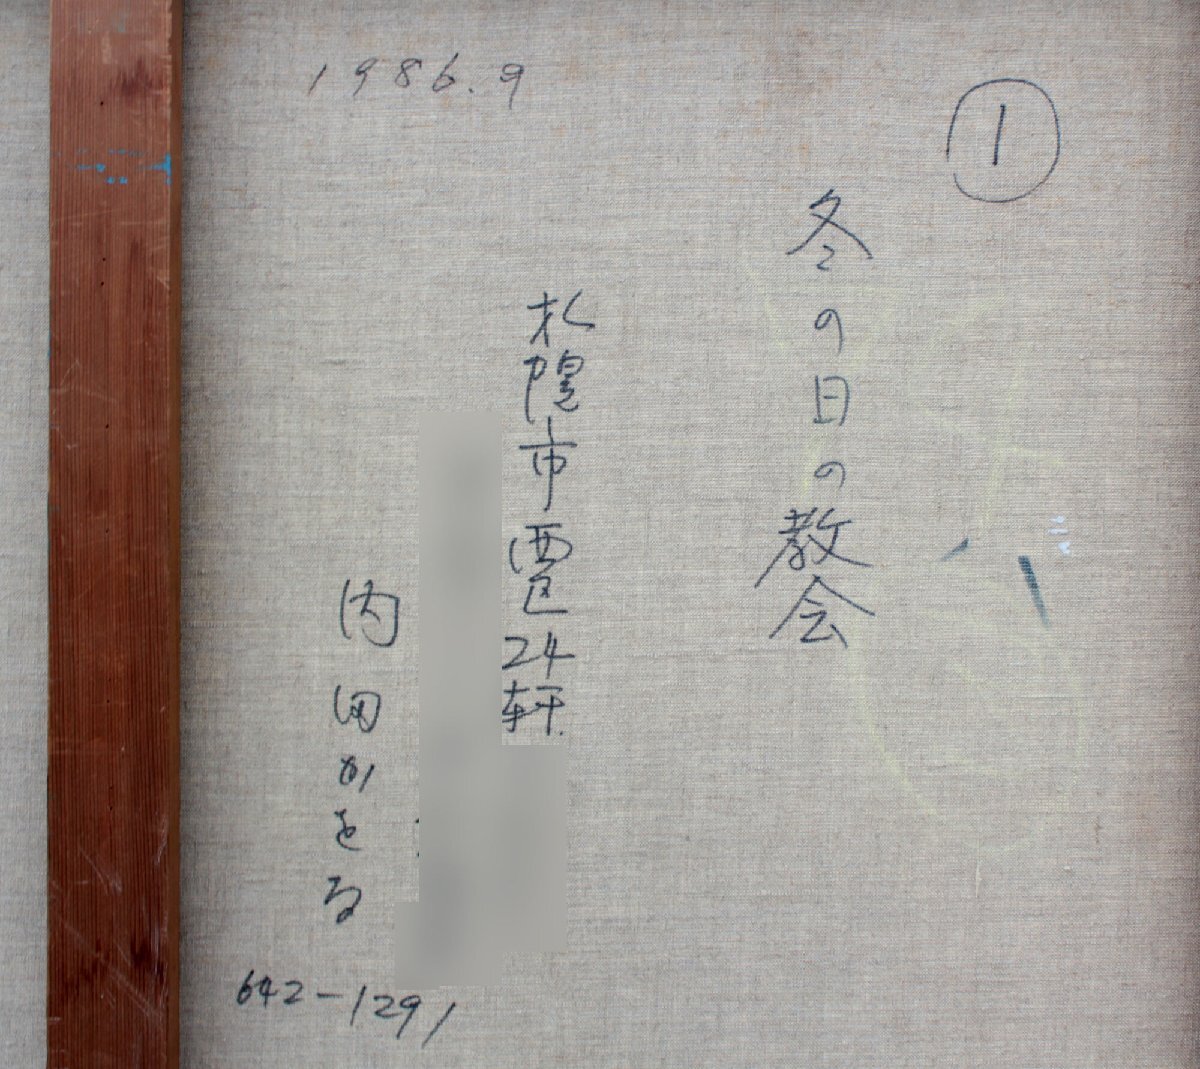 1986.9
①
冬の日の教会
札幌市西区24軒
内田かをる
642-1291